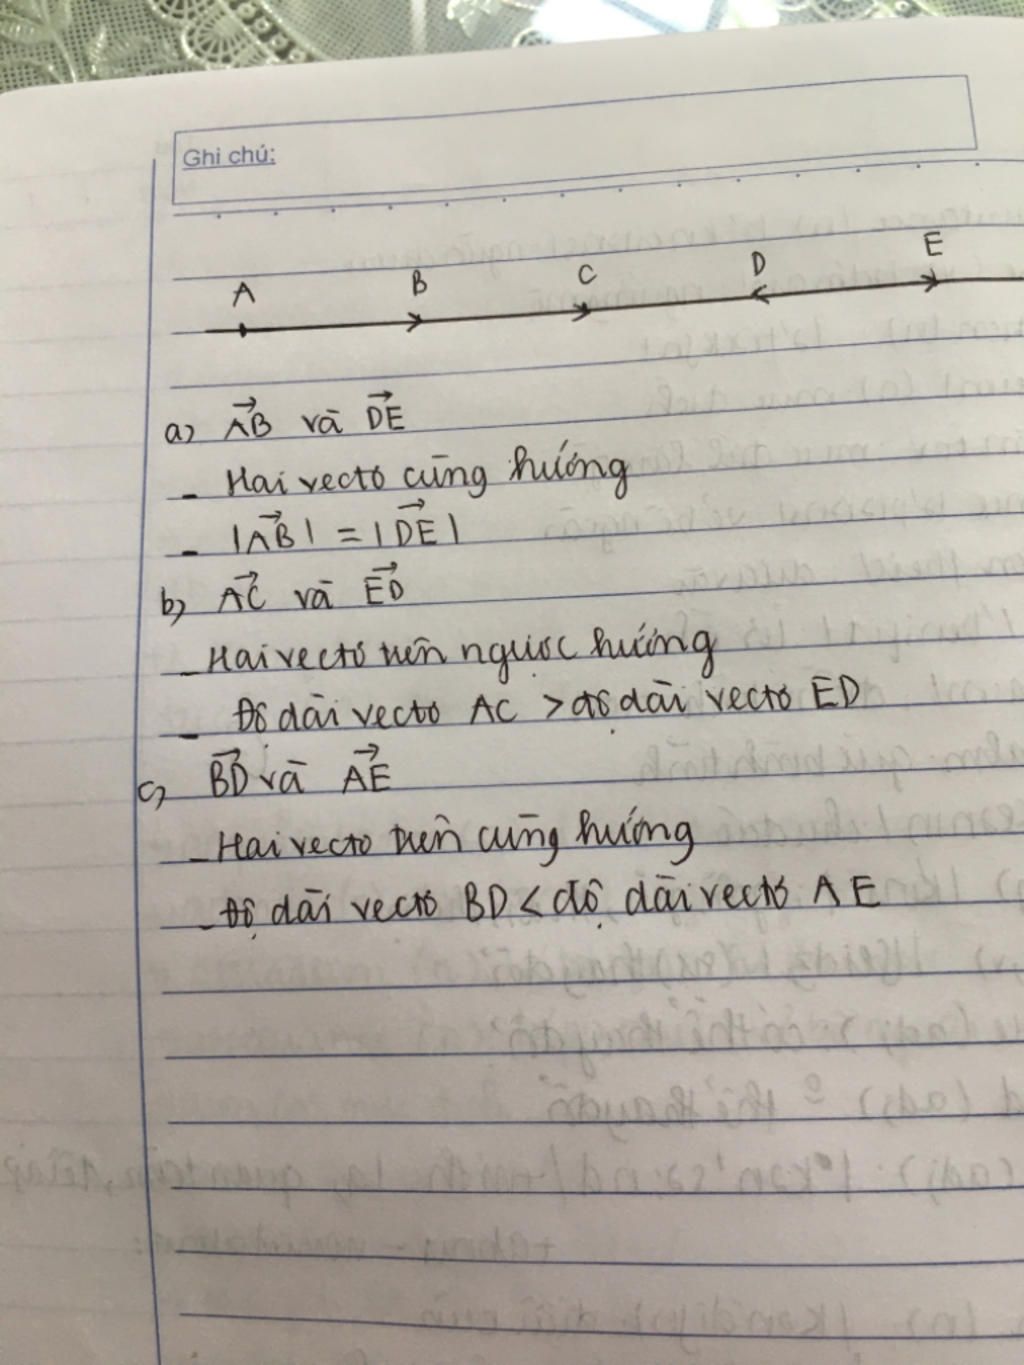 Ghi chú:
A B C D E
a) AB và DE
- Hai vectơ cùng hướng
- |AB| = |DE|
b) AC và ED
- Hai vectơ trên ngược hướng
- Độ dài vectơ AC > độ dài vectơ ED
c) BD và AE
- Hai vectơ trên cùng hướng
- Độ dài vectơ BD < độ dài vectơ AE